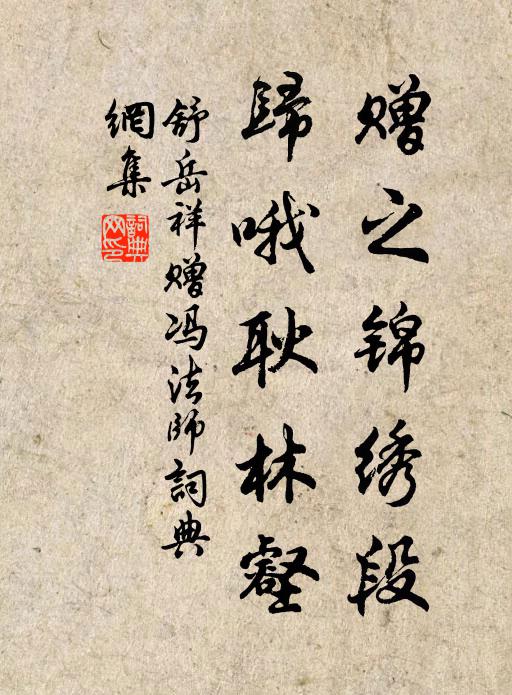 赠之锦绣段
歸哦耿林壑
舒岳祥赠冯法師詞典
網集
詞典网印